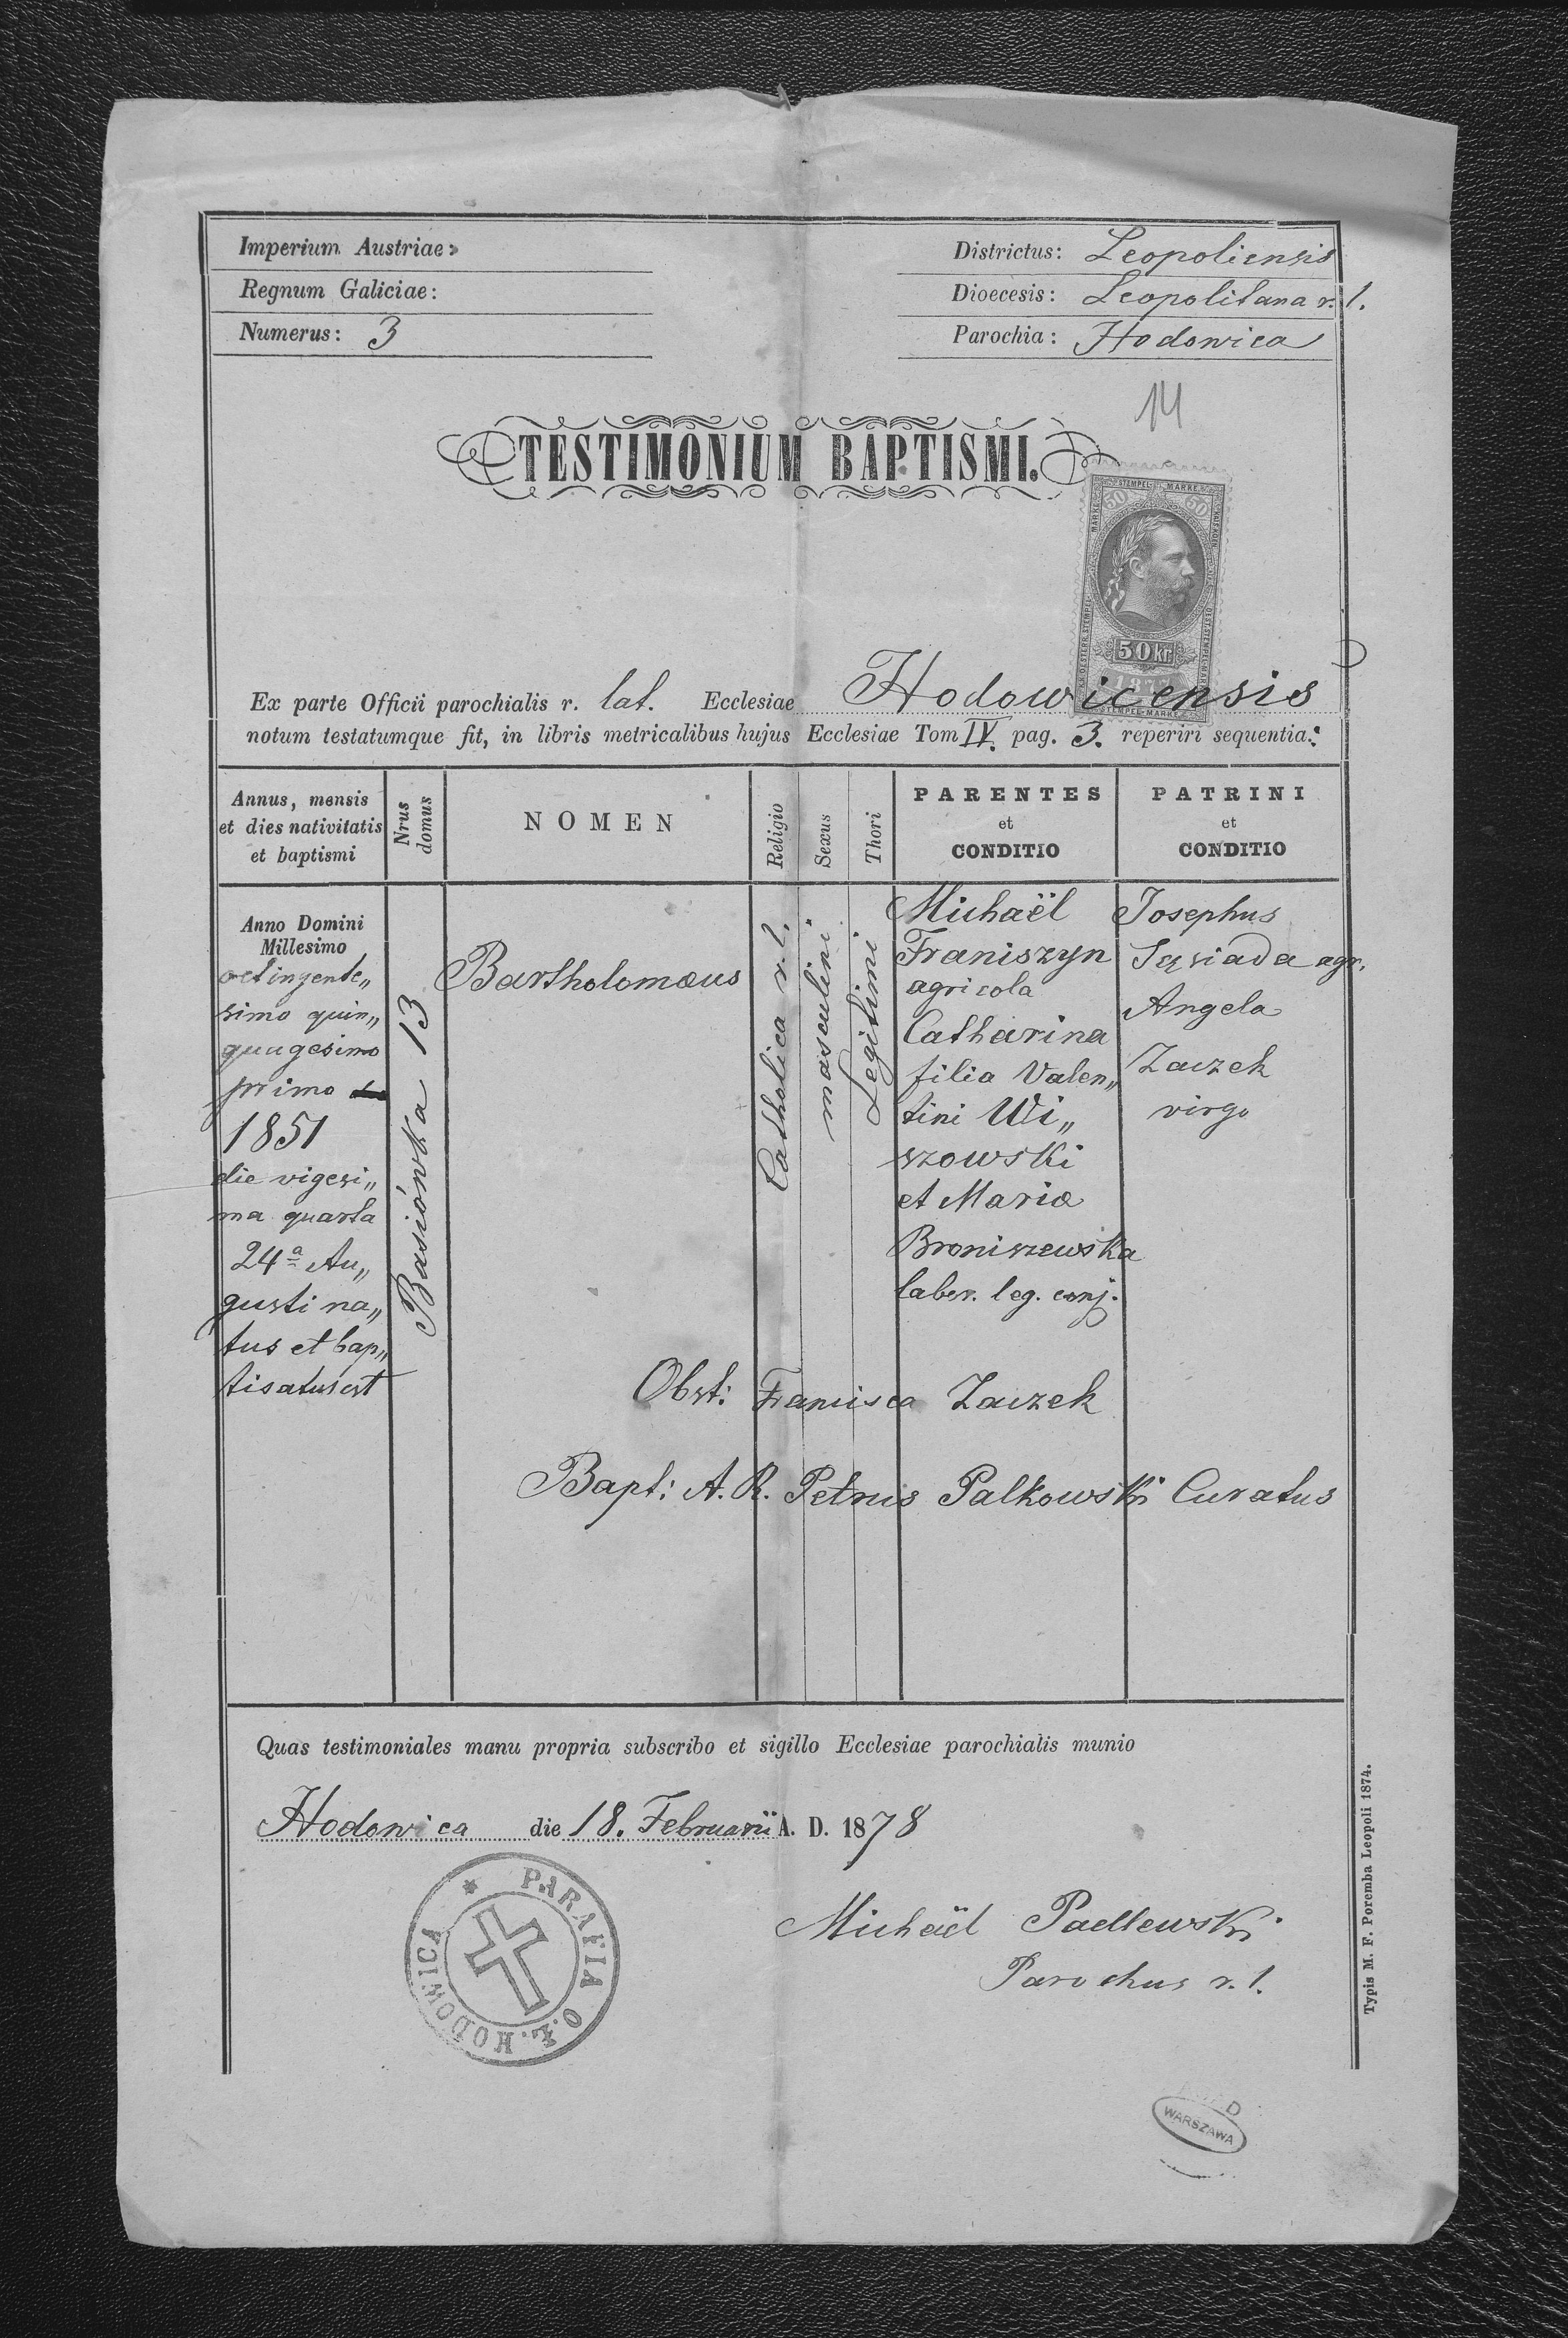 Imperium Austriae:
Regnum Galiciae:
Numerus: 3
Districtus: Leopoliensis
Dioecesis: Leopolitana r. l.
Parochia: Hodowica
14
TESTIMONIUM BAPTISMI.
STEMPEL MARKE
50 50
50 Kr
1877
Ex parte Officii parochialis r. lat. Ecclesiae Hodowicensis
notum testatumque fit, in libris metricalibus hujus Ecclesiae Tom IV. pag. 3. reperiri sequentia:
Annus, mensis
et dies nativitatis
et baptismi
Nrus
domus
NOMEN
Religio
Sexus
Thori
PARENTES
et
CONDITIO
PATRINI
et
CONDITIO
Anno Domini
Millesimo
octingente„
simo quin„
quagesimo
primo
1851
die vigesi„
ma quarta
24ª Au„
gusti na„
tus et bap„
tisatus est
Basiówka 13
Bartholomæus
Catholica r. l.
masculini
Legitimi
Michaël
Franiszyn
agricola
Catharina
filia Valen„
tini Wi„
szowski
et Mariæ
Broniszewska
labor. leg. conj.
Josephus
Sąsiada agr.
Angela
Zaczek
virgo
Obst: Francisca Zaczek
Bapt: A. R. Petrus Palkowski Curatus
Quas testimoniales manu propria subscribo et sigillo Ecclesiae parochialis munio
Hodowica die 18. Februarii A. D. 1878
* PARAFIA O. Ł. HODOWICA
Michaël Padlewski
Parochus r. l.
Typis M. F. Poremba Leopoli 1874.
WARSZAWA